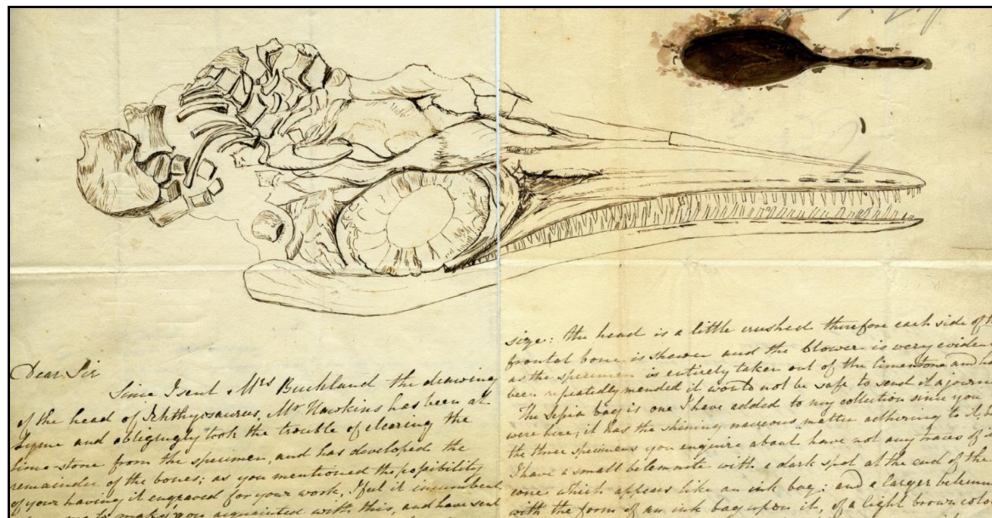 Dear Sir
Since I sent Mrs Buckland the drawing
of the head of Ichthyosaurus, Mr Hawkins has been at
Lyme and obligingly took the trouble of clearing the
lime-stone from the specimen, and has developed the
remainder of the bones; as you mentioned the possibility
of your having it engraved for your work, I felt it incumbent
to make you acquainted with this, and have sent
size: the head is a little crushed therefore each side of
frontal bone is shewn and the blower is very eviden
as the specimen is entirely taken out of the limestone and
been repeatedly mended it would not be safe to send it a journ
The Sepia bag is one I have added to my collection since you
were here; it has the shining nacreous matter adhering to it,
the three specimens you enquire about have not any traces of
I have a small belemnite with a dark spot at the end of the
cone which appears like an ink bag; and a larger belemn
with the form of an ink bag upon it, of a light brown colo